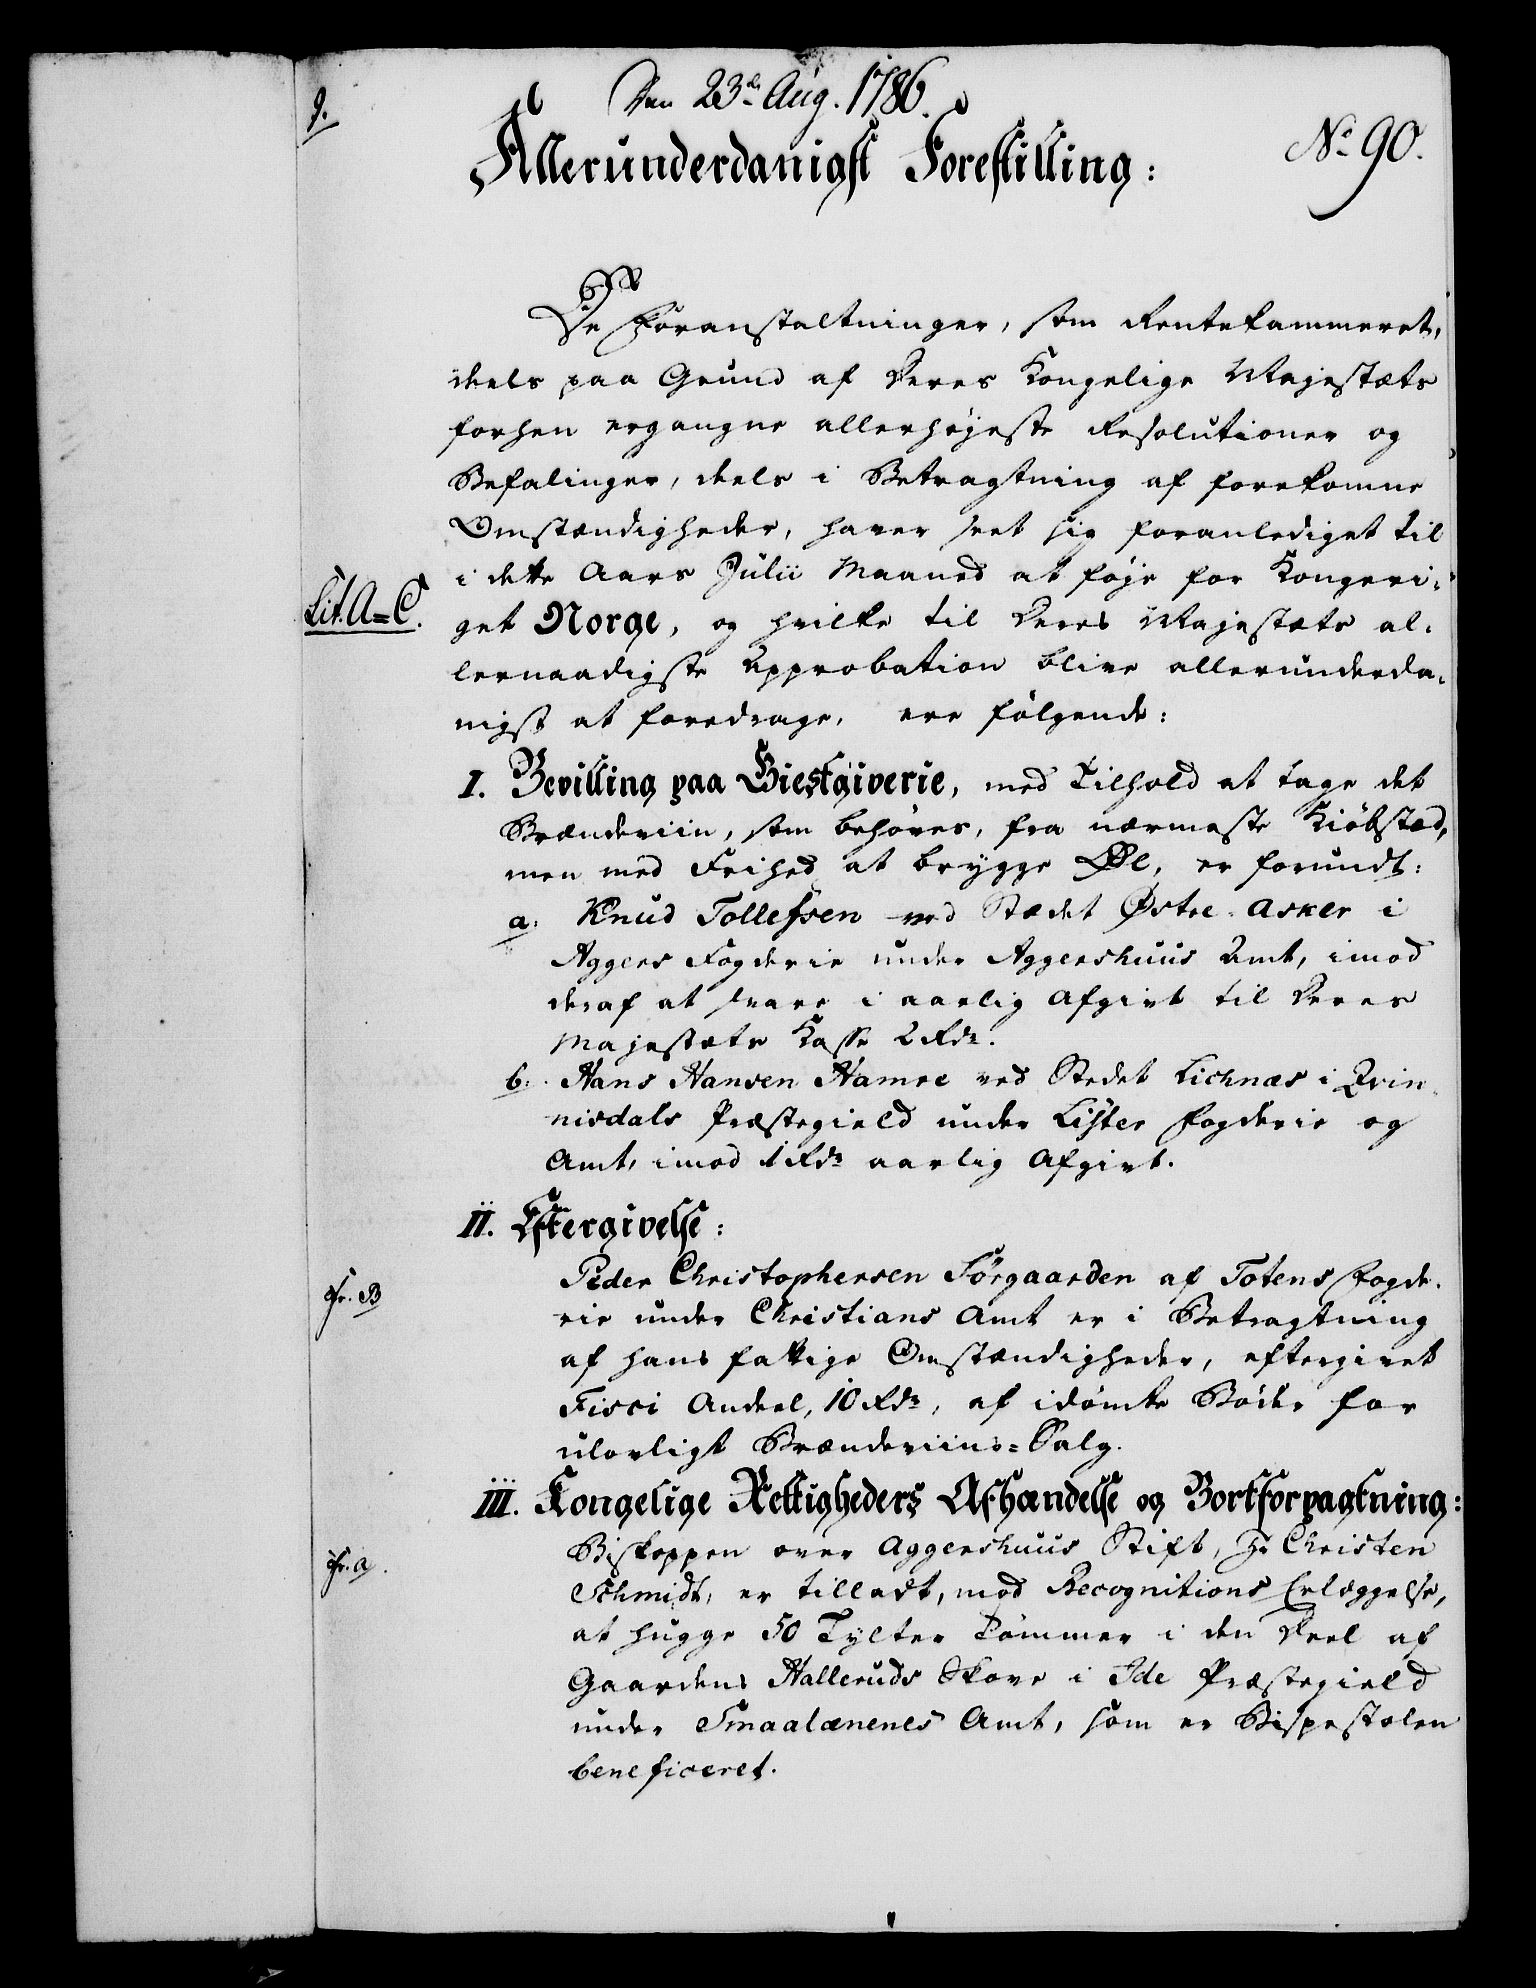 9.
Den 23de Aug. 1786.
No 90.
Allerunderdanigst Forestilling:
De Foranstaltninger, som Rentekammeret,
deels paa Grund af Deres Kongelige Majestæts
forhen ergangne allerhøjeste Resolutioner og
Befalinger, deels i Betragtning af forekomne
Omstændigheder, haver seet sig foranlediget til
i dette Aars Julii Maaned at føje for Kongeri-
Lit. A=C.
get Norge, og hvilke til Deres Majestæts al-
lernaadigste Approbation blive allerunderda-
nigst at foredrage, ere følgende:
I. Bevilling paa Giestgiverie, med Tilhold at tage det
Brændeviin, som behøves, fra nærmeste Kiøbstæd,
men med Frihed at brygge Øl, er forundt:
a. Knud Tollefsen ved Stædet Østre-Asker i
Aggers Fogderie under Aggershuus Amt, imod
deraf at svare i aarlig Afgivt til Deres
Majestæts Kasse 2 Rdr.
b. Hans Hansen Hamre ved Stedet Lichnæs i Qvin-
nisdals Præstegield under Lister Fogderie og
Amt, imod 1 Rdr aarlig Afgivt.
II. Eftergivelse:
Peder Christophersen Sørgaarden af Totens Fogde-
Fr. B
rie under Christians Amt er i Betragtning
af hans fattige Omstændigheder, eftergivet
Fisci Andeel, 10 Rdr, af idømte Bøder for
ulovligt Brændeviins=Salg.
III. Kongelige Rettigheders Afhændelse og Bortforpagtning:
Biskoppen over Aggershuus Stift, Hr Christen
Fr. a.
Schmidt, er tilladt, mod Recognitions Erlæggelse,
at hugge 50 Tylter Tømmer i den Deel af
Gaardens Halleruds Skove i Ide Præstegield
under Smaalænenes Amt, som er Bispestolen
beneficeret.